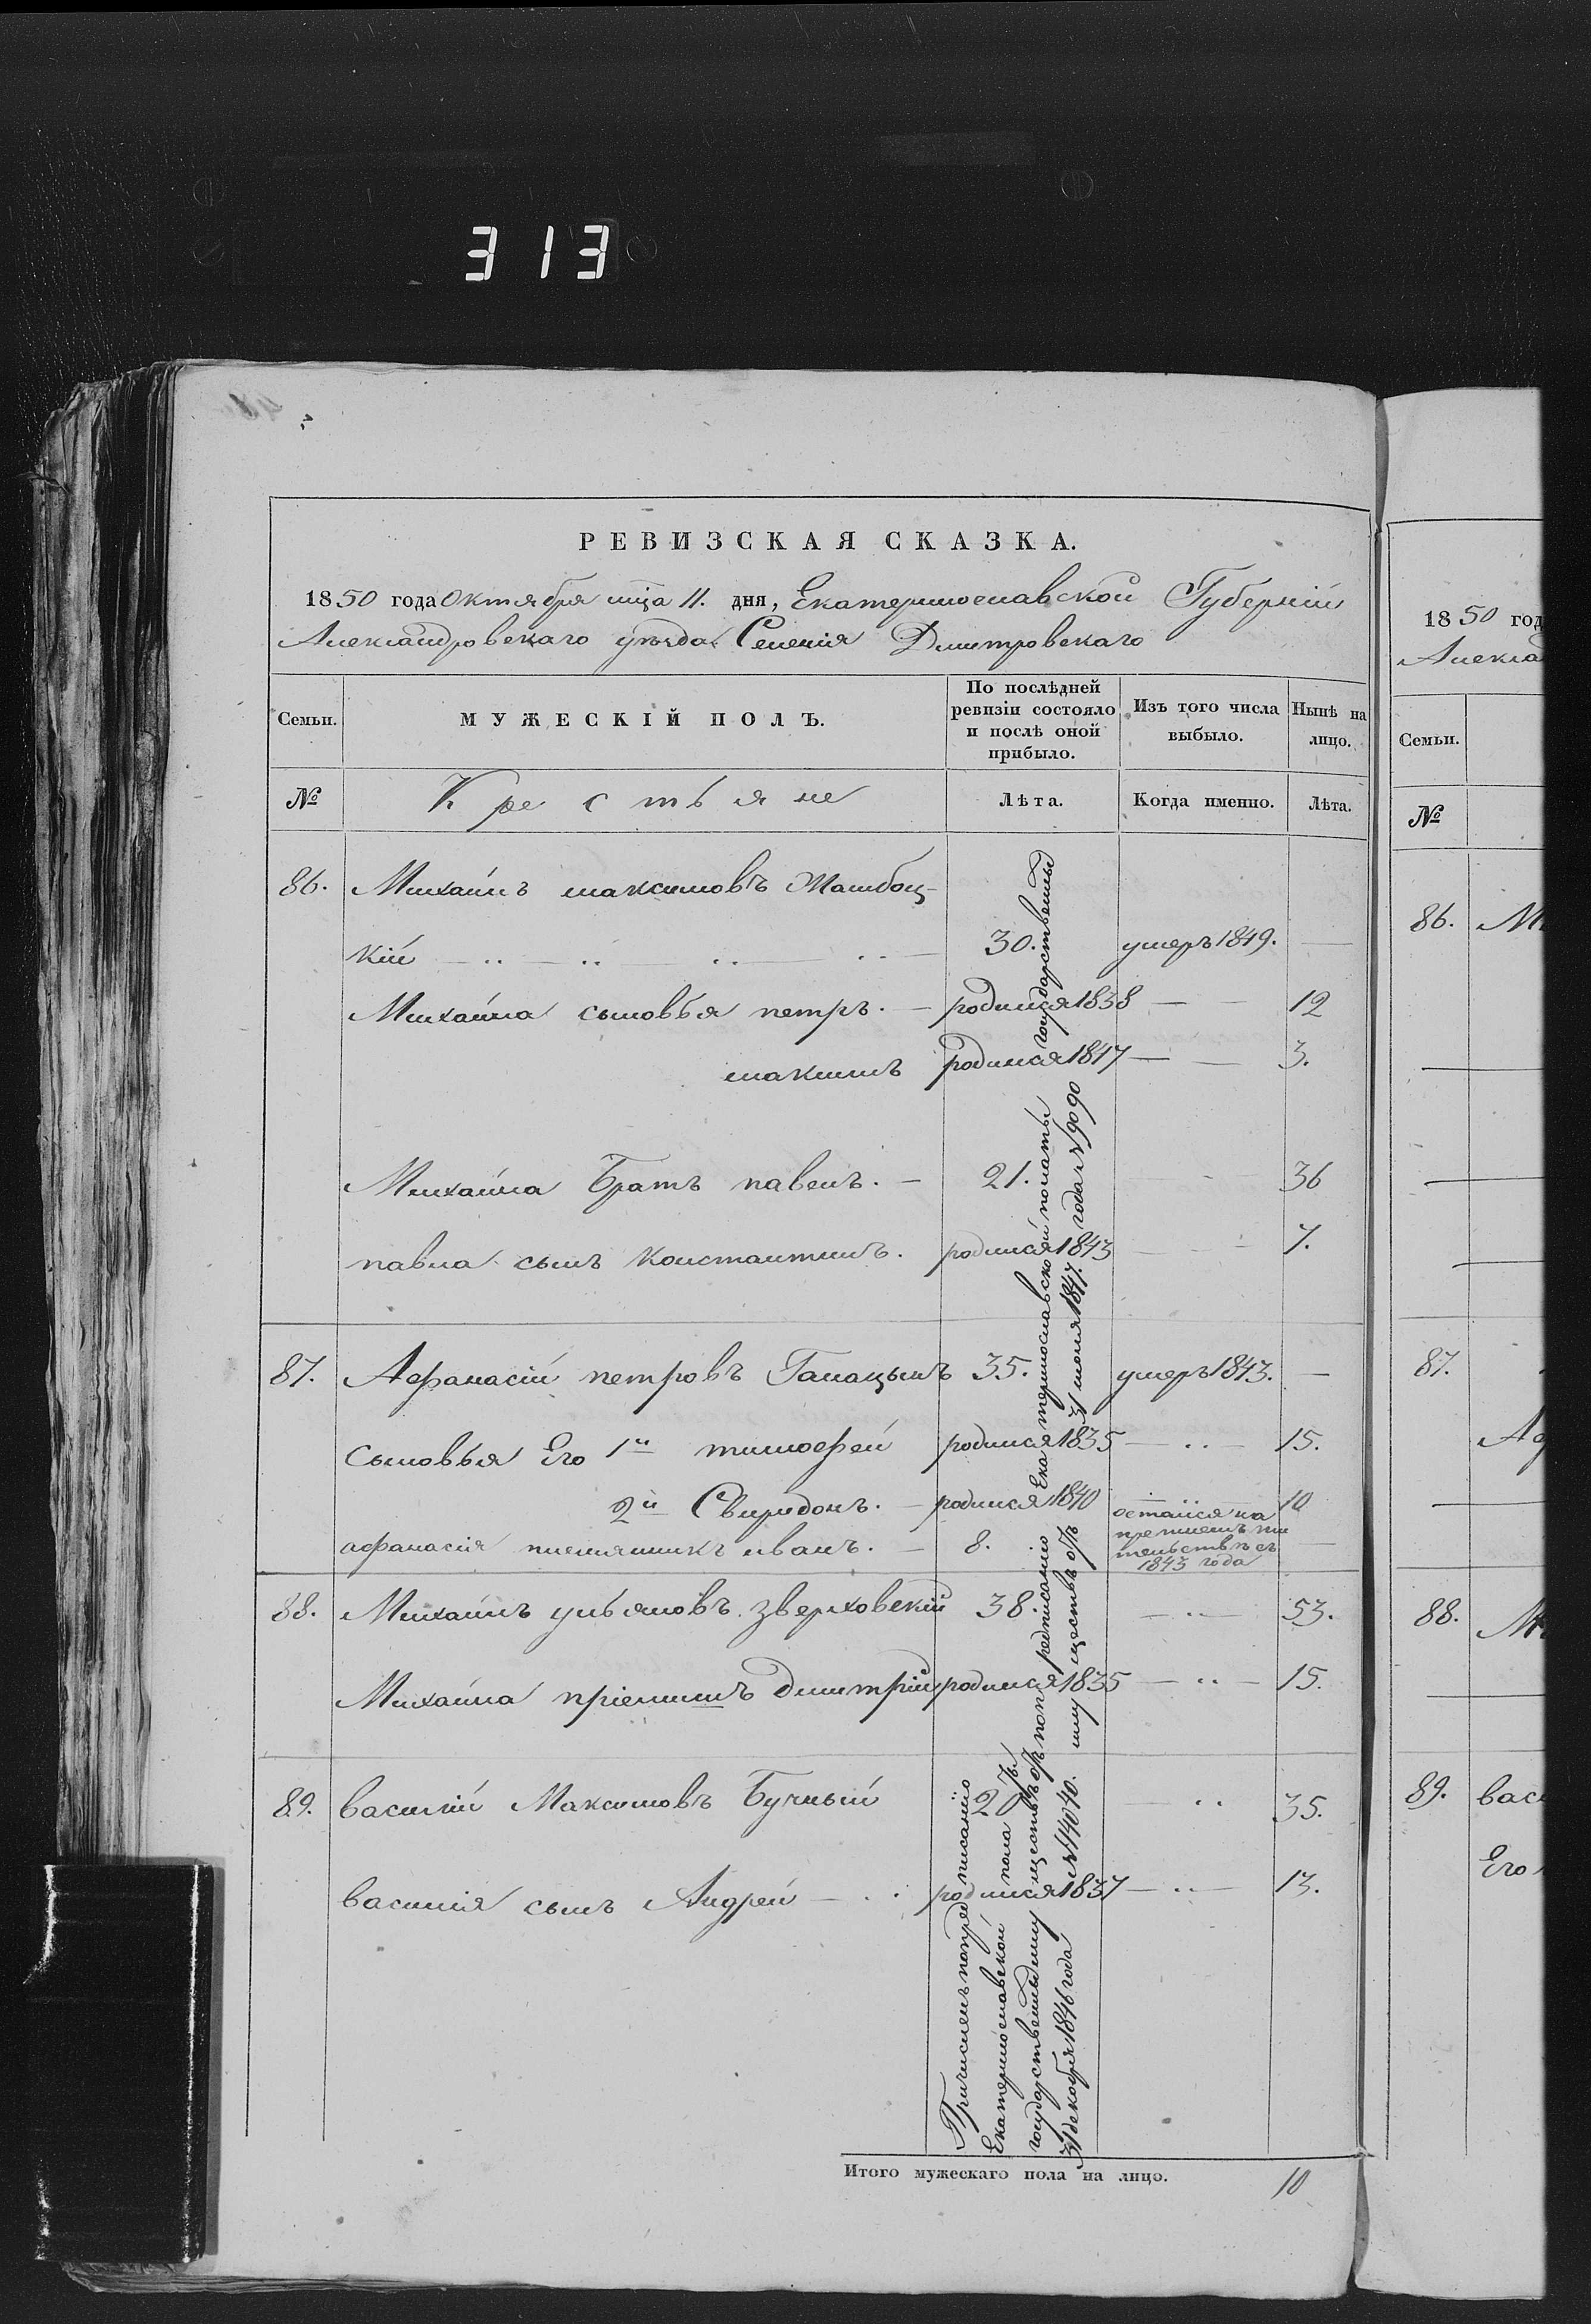 313
РЕВИЗСКАЯ СКАЗКА.
1850 года Октября мца 11. дня, Екатеринославской Губерніи
Александровскаго уѣзда Селенія Дмитровскаго
Семьи. МУЖЕСКІЙ ПОЛЪ. По послѣдней ревизіи состояло и послѣ оной прибыло. Изъ того числа выбыло. Нынѣ на лицо.
№ Крестьяне Лѣта. Когда именно. Лѣта.
86. Михаилъ максимовъ
кій 30. умеръ 1849. —
Михаила сыновья петръ. — родился 1838 — — 12
максимъ родился 1847 — — 3.
Михаила Братъ павелъ. — 21. 36
павла сынъ константинъ. родился 1843 7.
87. Афанасій петровъ 35. умеръ 1843. —
сыновья Его 1й тимофей родился 1835 — 15.
2й Свиридонъ. — родился 1840 — 10
афанасія племянникъ иванъ. — 8. остался на прежнемъ жительствѣ съ 1843 года —
88. Михаилъ ульяновъ зверховскій 38. — 53.
Михаила пріемышъ дмитрій родился 1835 — 15.
89. василій Максимовъ Бучный 20 — 35.
василія сынъ Андрей — родился 1837 — 13.
Причисленъ по предписанію
Екатеринославской полаты
государственныхъ имуществъ отъ
31 декабря 1846 года №14040.
по предписанію Екатеринославской полаты государственныхъ
имуществъ отъ 31 июля 1847. года №9090
Итого мужескаго пола на лицо. 10
1850 год
Алексан
Семьи.
№
86. М
87.
Аф
88. М
89. вас
Его